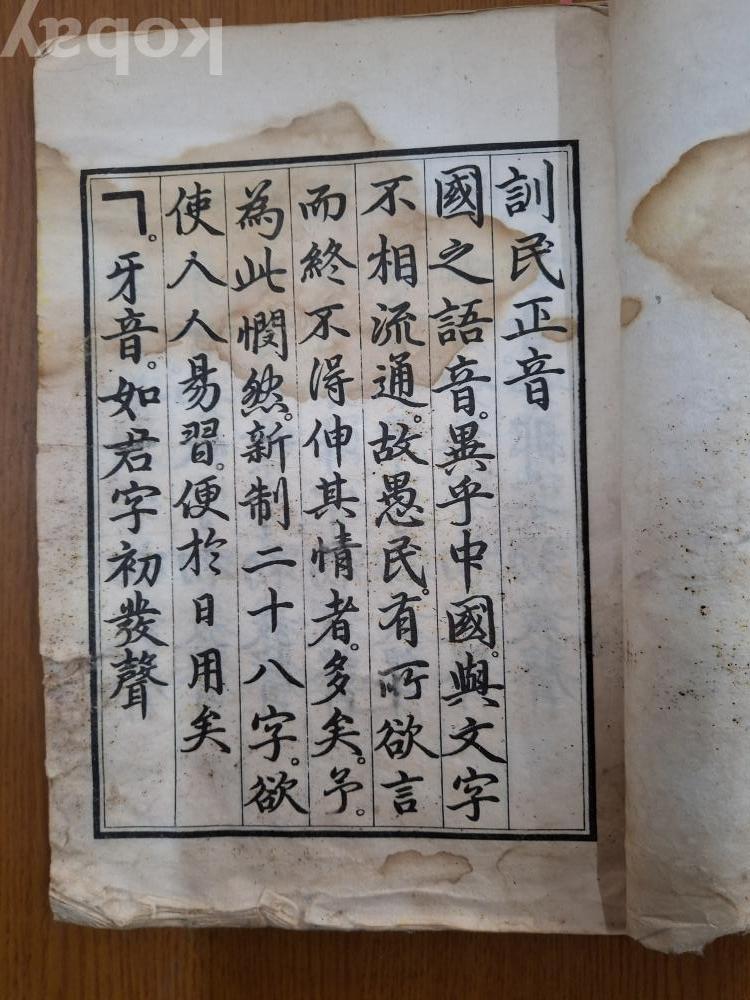 訓民正音
國之語音。異乎中國。與文字
不相流通。故愚民。有所欲言
而終不得伸其情者。多矣。予。
為此憫然。新制二十八字。欲
使人人易習。便於日用矣
ㄱ。牙音。如君字初發聲
kobay